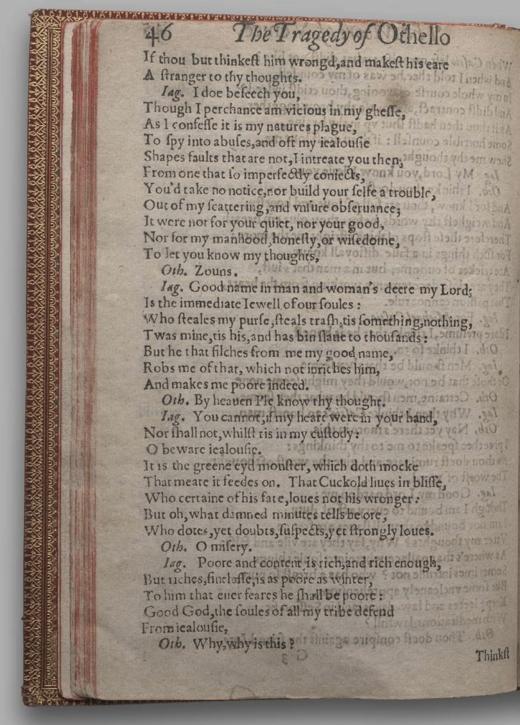 46 The Tragedy of Othello
If thou but thinkeſt him wrongd,and makeſt his eare
A ſtranger to thy thoughts.
Iag. I doe beſeech you,
Though I perchance am vicious in my gheſſe,
As I confeſſe it is my natures plague,
To ſpy into abuſes,and oft my iealouſie
Shapes faults that are not,I intreate you then,
From one that ſo imperfectly coniects,
You'd take no notice,nor build your ſelfe a trouble,
Out of my ſcattering,and vnſure obſeruance;
It were not for your quiet, nor your good,
Nor for my manhood,honeſty,or wiſedome,
To let you know my thoughts,
Oth. Zouns.
Iag. Good name in man and woman's deere my Lord;
Is the immediate Iewell of our ſoules:
Who ſteales my purſe,ſteals traſh,tis ſomething,nothing,
Twas mine,tis his,and has bin ſlaue to thouſands:
But he that filches from me my good name,
Robs me of that, which not inriches him,
And makes me poore indeed.
Oth. By heauen I'le know thy thought.
Iag. You cannot,if my heart were in your hand,
Nor ſhall not,whilſt tis in my cuſtody:
O beware iealouſie.
It is the greene eyd monſter, which doth mocke
That meate it feedes on. That Cuckold liues in bliſſe,
Who certaine of his fate,loues not his wronger:
But oh,what damned minutes tells he ore,
Who dotes,yet doubts,ſuſpects,yet ſtrongly loues.
Oth. O miſery.
Iag. Poore and content is rich,and rich enough,
But riches,fineleſſe,is as poore as winter,
To him that euer feares he ſhall be poore:
Good God,the ſoules of all my tribe defend
From iealouſie,
Oth. Why,why is this?
Thinkſt